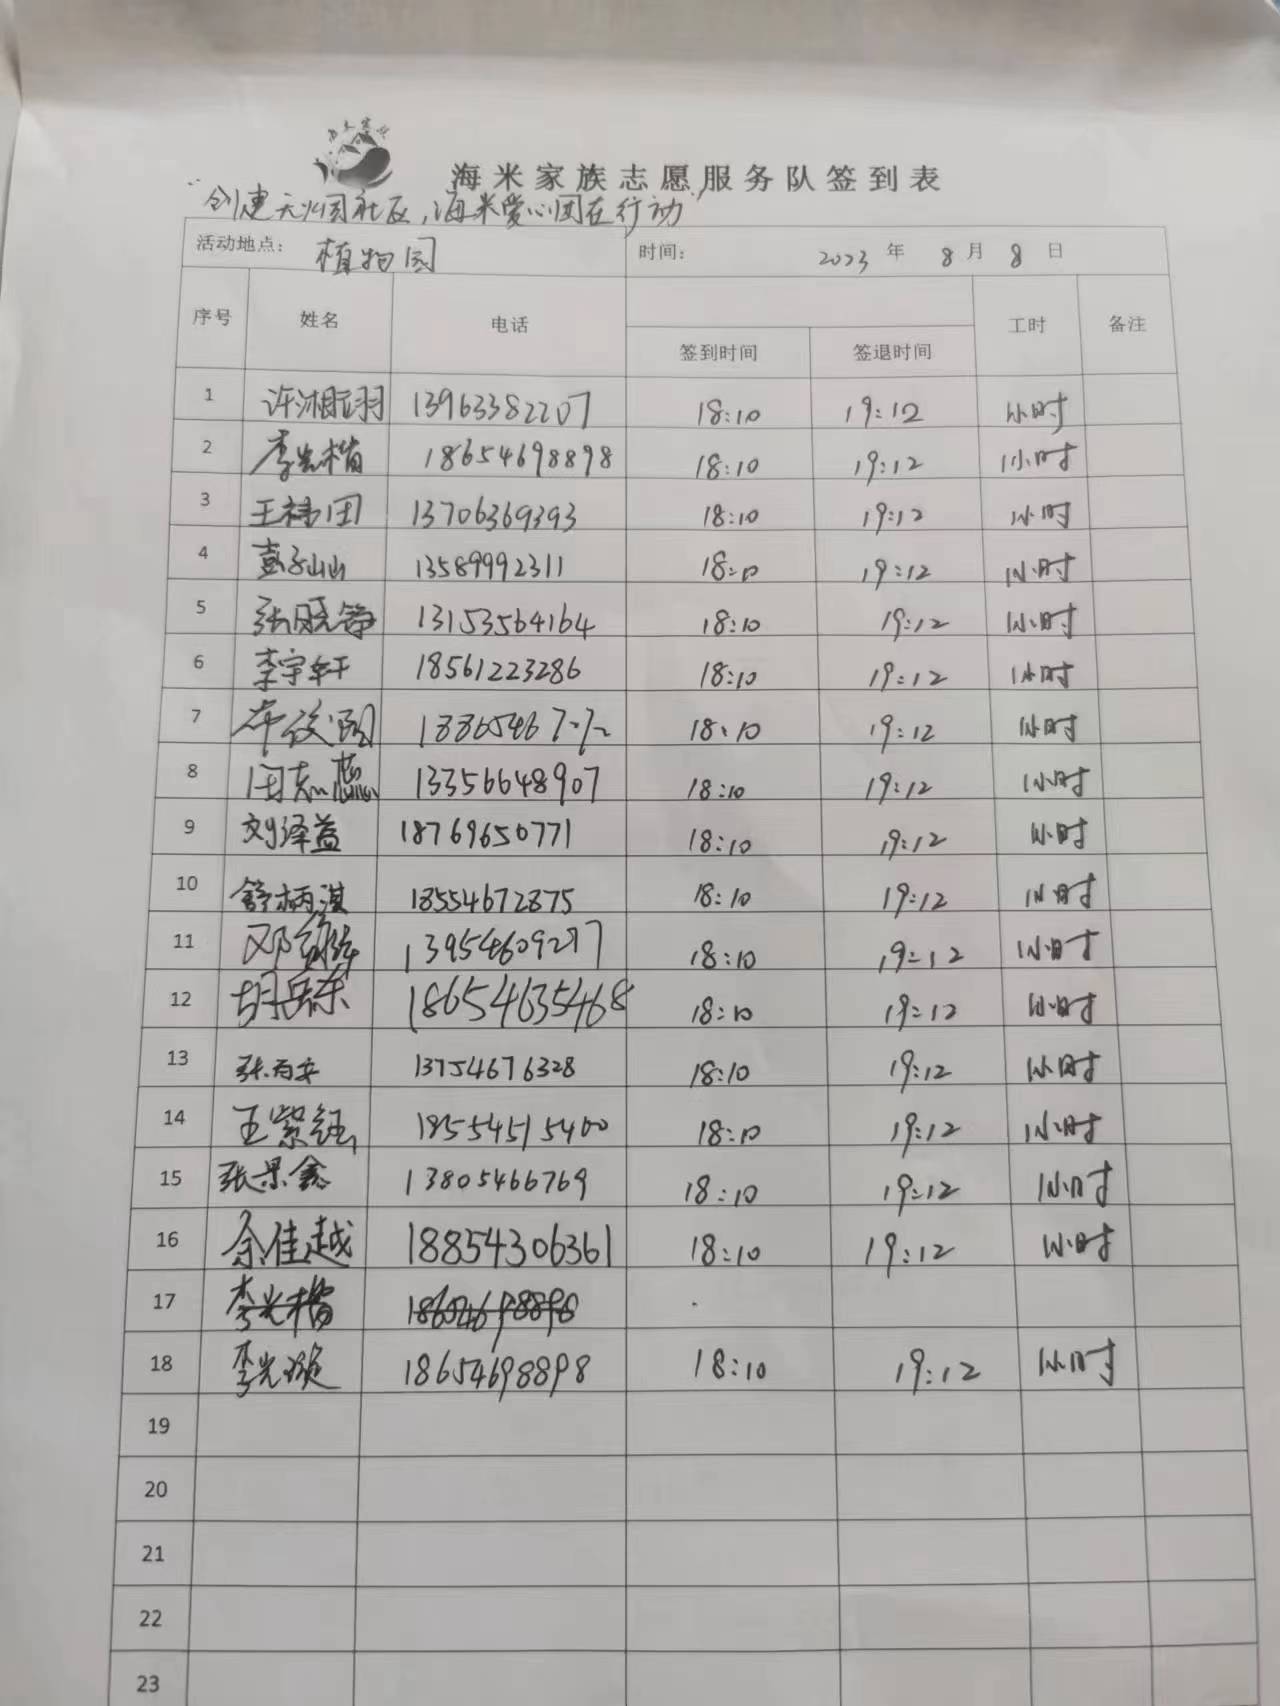 海米家族志愿服务队签到表
创建无烟社区,海米爱心团在行动"
活动地点: 植物园 时间: 2023 年 8 月 8 日
序号 姓名 电话 工时 备注
签到时间 签退时间
1 许湘珑羽 13963382207 18:10 19:12 1小时
2 李光楷 18654698898 18:10 19:12 1小时
3 王祎团 13706369393 18:10 19:12 1小时
4 彭子山山 13589992311 18:10 19:12 1小时
5 张晓箏 13153564164 18:10 19:12 1小时
6 李宇轩 18561223286 18:10 19:12 1小时
7 18:10 19:12 1小时
8 闫志蕊 13356648907 18:10 19:12 1小时
9 刘泽益 18769650771 18:10 19:12 1小时
10 舒柄淇 18554672875 18:10 19:12 1小时
11 邓 13954609277 18:10 19:12 1小时
12 胡岳东 18654635468 18:10 19:12 1小时
13 张百安 13754676328 18:10 19:12 1小时
14 王紫钰 18554515400 18:10 19:12 1小时
15 张景鑫 13805466769 18:10 19:12 1小时
16 余佳越 18854306361 18:10 19:12 1小时
17 李光楷
18 李光璇 18654698898 18:10 19:12 1小时
19
20
21
22
23